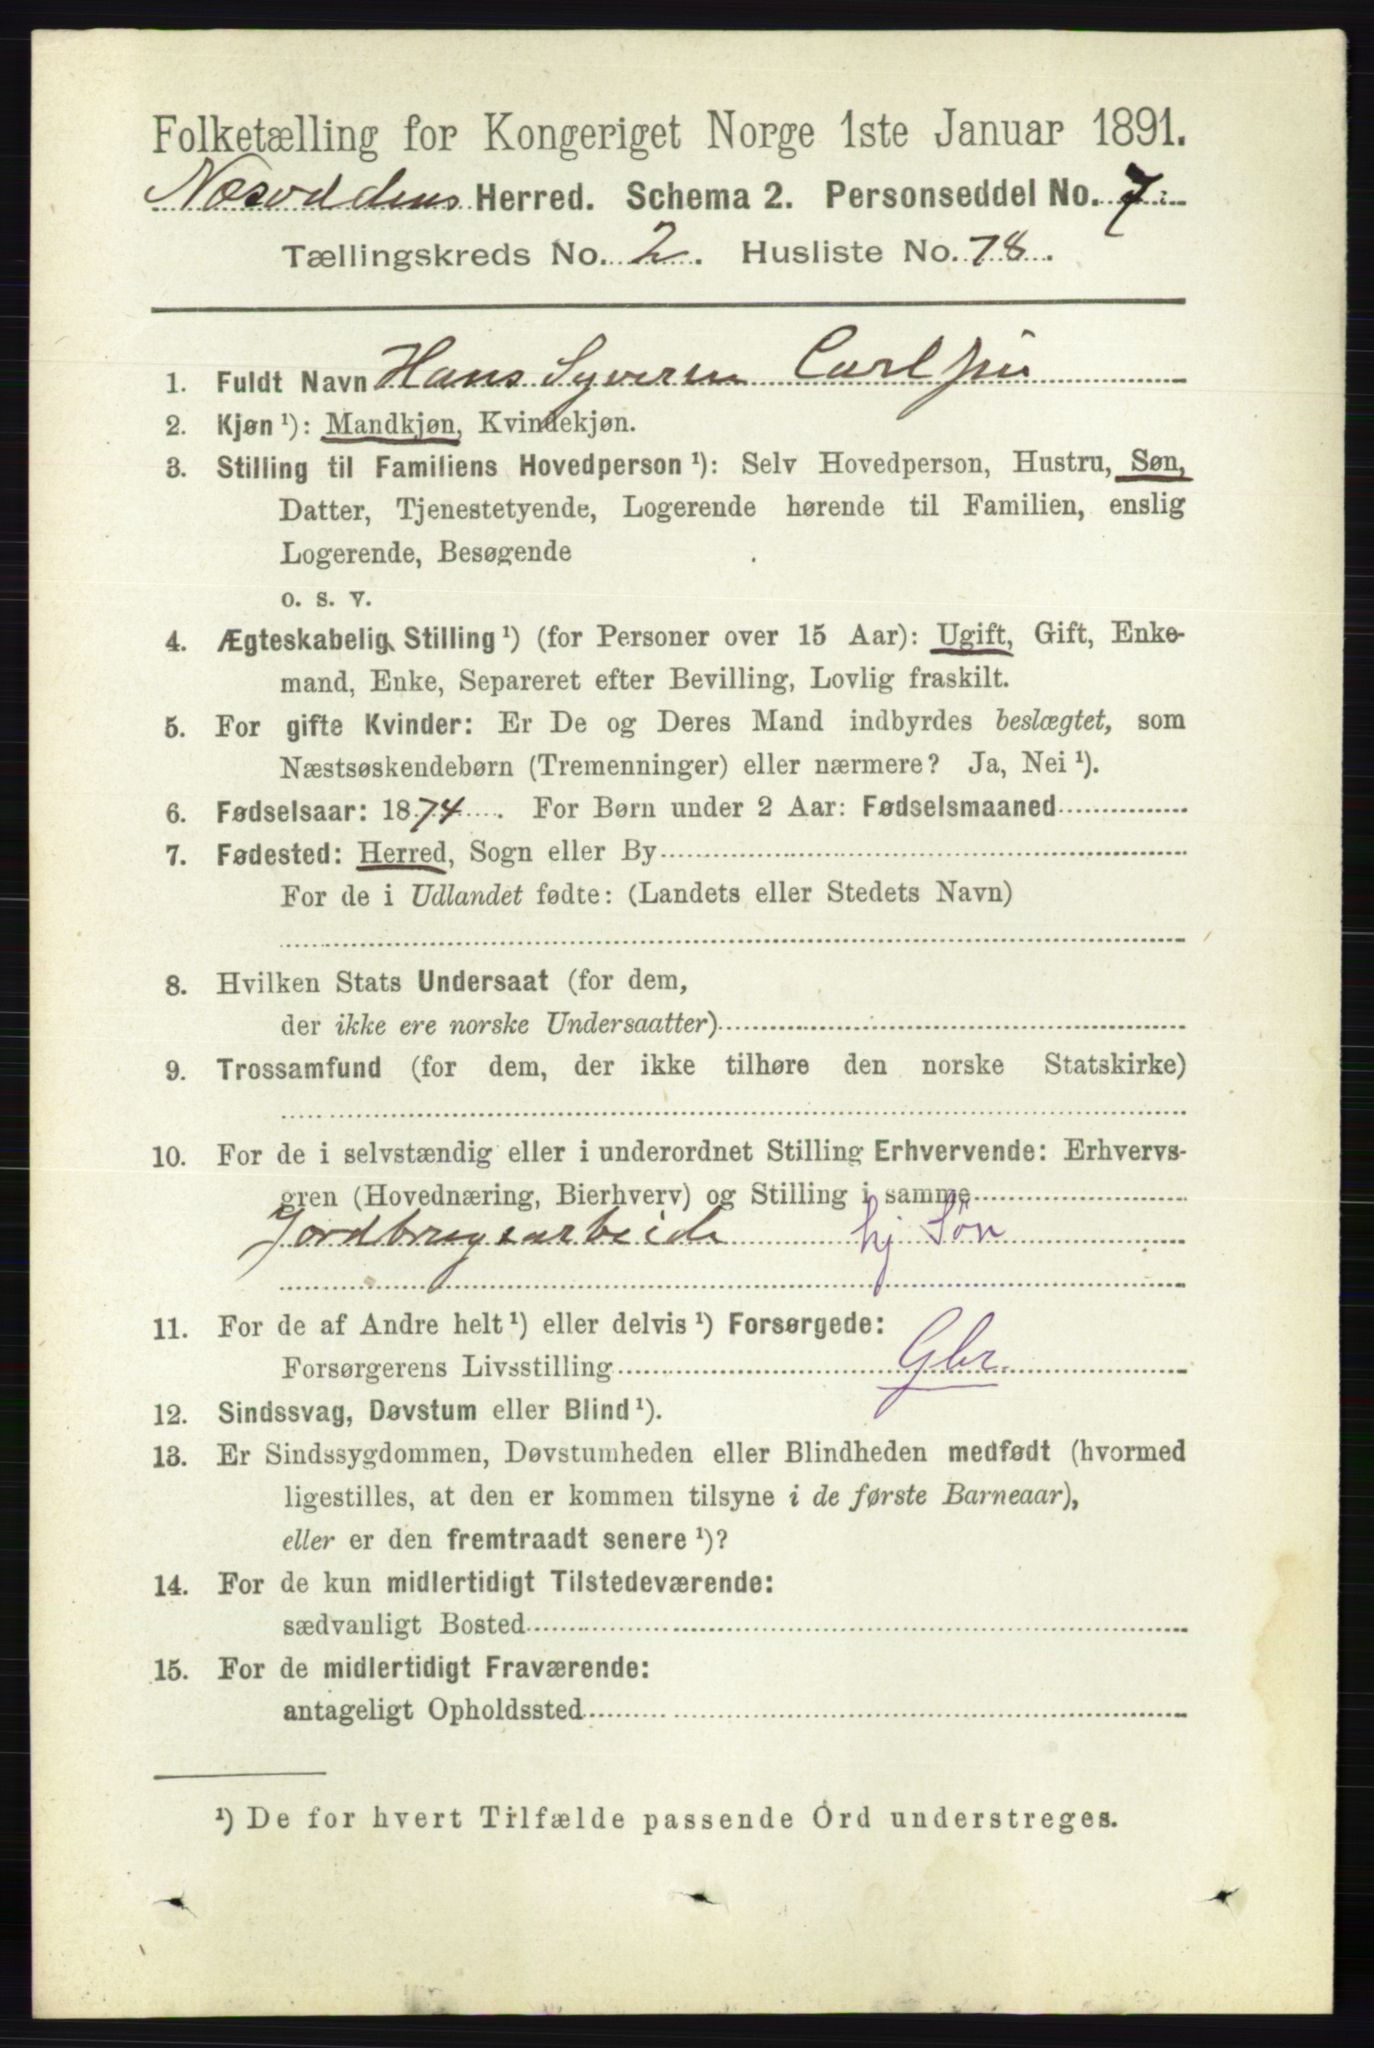 Folketælling for Kongeriget Norge 1ste Januar 1891.
Næsoddens Herred. Schema 2. Personseddel No. 7.
Tællingskreds No. 2. Husliste No. 78.
1. Fuldt Navn Hans Syversen Carlsen
2. Kjøn ¹): Mandkjøn, Kvindekjøn.
3. Stilling til Familiens Hovedperson ¹): Selv Hovedperson, Hustru, Søn,
Datter, Tjenestetyende, Logerende hørende til Familien, enslig
Logerende, Besøgende
o. s. v.
4. Ægteskabelig Stilling ¹) (for Personer over 15 Aar): Ugift, Gift, Enke-
mand, Enke, Separeret efter Bevilling, Lovlig fraskilt.
5. For gifte Kvinder: Er De og Deres Mand indbyrdes beslægtet, som
Næstsøskendebørn (Tremenninger) eller nærmere? Ja, Nei ¹).
6. Fødselsaar: 1874. For Børn under 2 Aar: Fødselsmaaned
7. Fødested: Herred, Sogn eller By
For de i Udlandet fødte: (Landets eller Stedets Navn)
8. Hvilken Stats Undersaat (for dem,
der ikke ere norske Undersaatter)
9. Trossamfund (for dem, der ikke tilhøre den norske Statskirke)
10. For de i selvstændig eller i underordnet Stilling Erhvervende: Erhvervs-
gren (Hovednæring, Bierhverv) og Stilling i samme
Jordbrugsarbeide hj Søn
11. For de af Andre helt ¹) eller delvis ¹) Forsørgede:
Forsørgerens Livsstilling Gbr.
12. Sindssvag, Døvstum eller Blind ¹).
13. Er Sindssygdommen, Døvstumheden eller Blindheden medfødt (hvormed
ligestilles, at den er kommen tilsyne i de første Barneaar),
eller er den fremtraadt senere ¹)?
14. For de kun midlertidigt Tilstedeværende:
sædvanligt Bosted
15. For de midlertidigt Fraværende:
antageligt Opholdssted
¹) De for hvert Tilfælde passende Ord understreges.